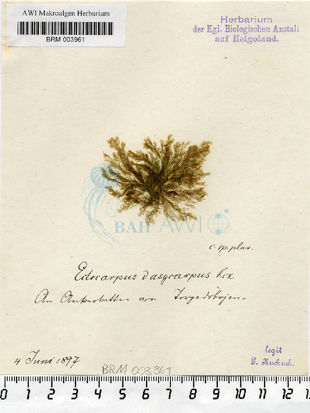 AWI Makroalgen Herbarium
BRM 003961
Herbarium
der Kgl. Biologischen Anstalt
auf Helgoland.
BAH AWI
c. sp. plur.
Ectocarpus dasycarpus
An
4 Juni 1897
legit
P. Kuckuck.
BRM 003961
0 1 2 3 4 5 6 7 8 9 10 11 12 13